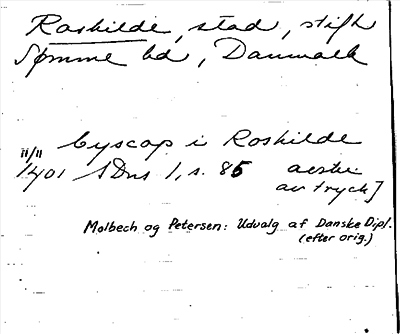 Roskilde, stad, stift
Sømme hd, Danmark
11/11 byscop i Roskilde
1401 SDns 1, s. 85
av tryck]
Molbech og Petersen: Udvalg af Danske Dipl.
(efter orig.)